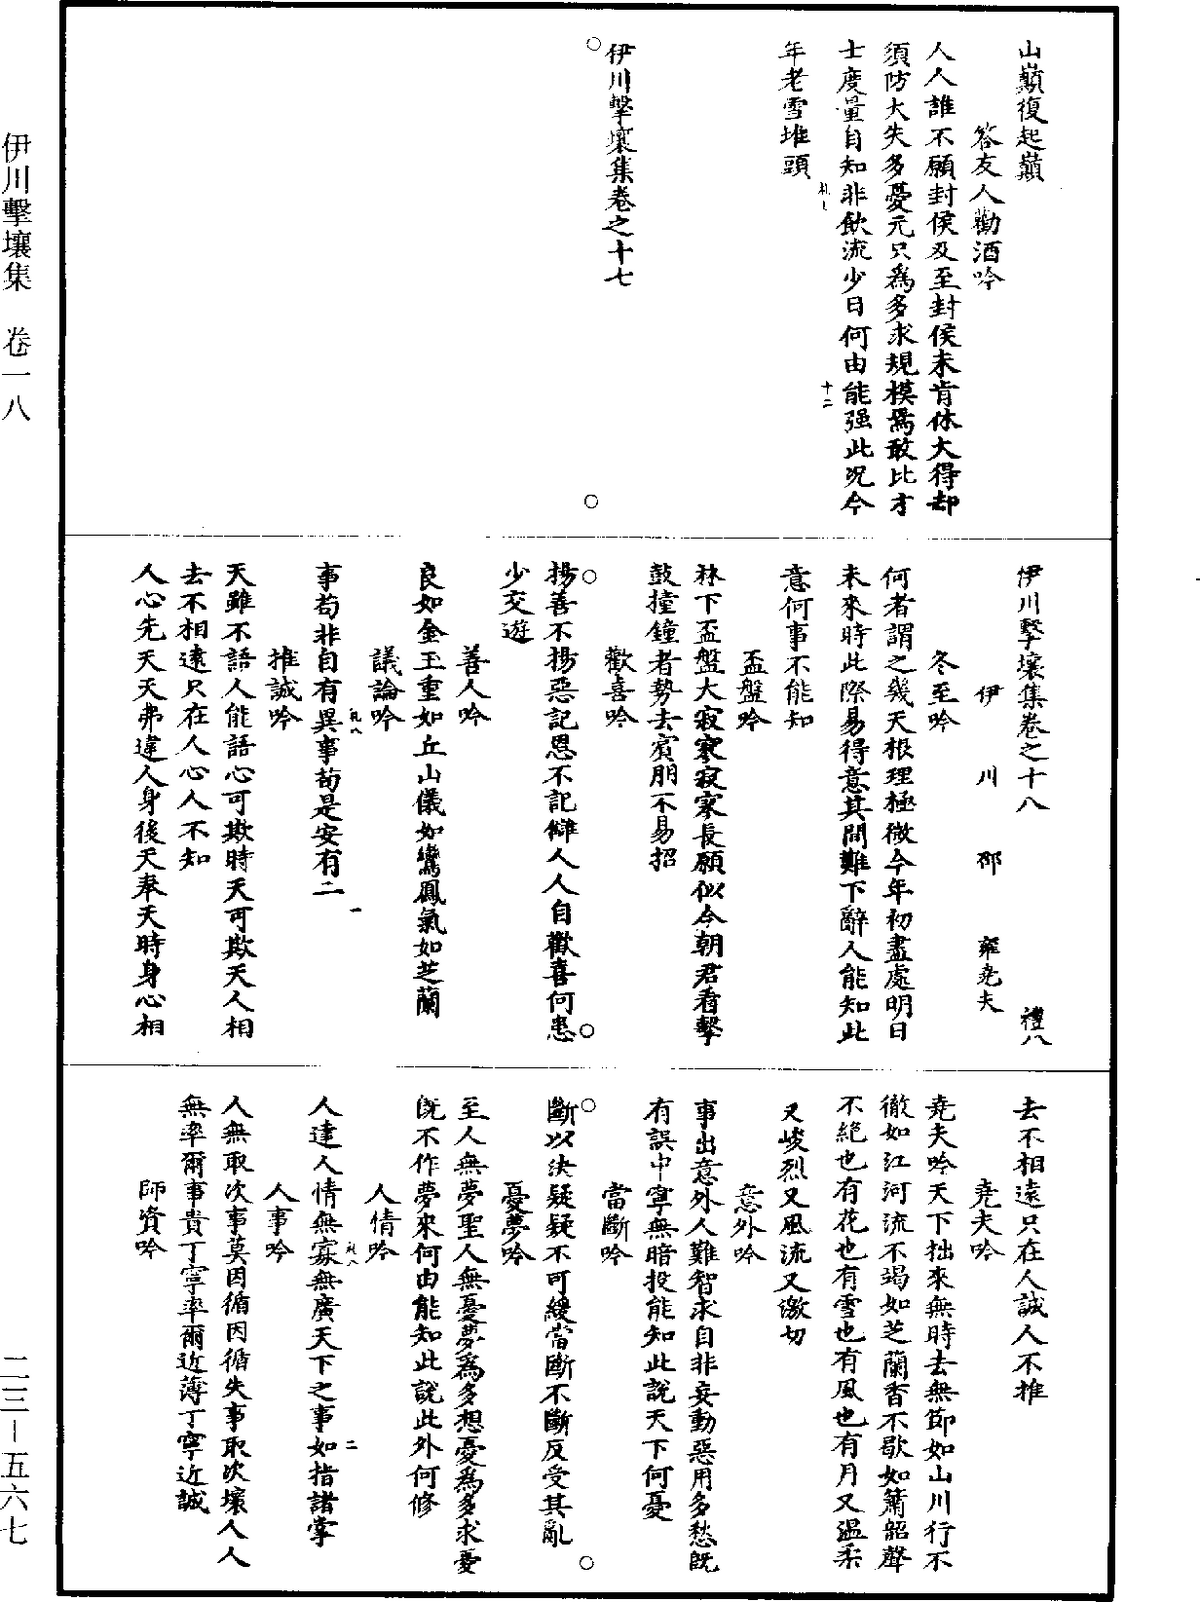 山巔復起巔
答友人勸酒吟
人人誰不願封侯及至封侯未肯休大得却
須防大失多憂元只為多求規模焉敢比才
士度量自知非飲流少日何由能强此況今
年老雪堆頭
十二
伊川擊壤集卷之十七
伊川擊壤集卷之十八
禮八
伊川邵雍堯夫
冬至吟
何者謂之幾天根理極微今年初盡處明日
未來時此際易得意其間難下辭人能知此
意何事不能知
盃盤吟
林下盃盤大寂寥寂寥長願似今朝君看擊
鼓撞鐘者勢去賓朋不易招
歡喜吟
揚善不揚惡記恩不記讎人人自歡喜何患
少交遊
善人吟
良如金玉重如丘山儀如鸞鳳氣如芝蘭
議論吟
事苟非自有異事苟是安有二
一
推誠吟
天雖不語人能語心可欺時天可欺天人相
去不相遠只在人心人不知
人心先天天弗違人身後天奉天時身心相
去不相遠只在人誠人不推
堯夫吟
堯夫吟天下拙來無時去無節如山川行不
徹如江河流不竭如芝蘭香不歇如簫韶聲
不絕也有花也有雪也有風也有月又溫柔
又峻烈又風流又激切
意外吟
事出意外人難智求自非妄動惡用多愁既
有誤中寧無暗投能知此說天下何憂
當斷吟
斷以決疑疑不可緩當斷不斷反受其亂
憂夢吟
至人無夢聖人無憂夢為多想憂為多求憂
既不作夢來何由能知此說此外何修
人情吟
人達人情無寡無廣天下之事如指諸掌
二
人事吟
人無取次事莫因循因循失事取次壞人人
無率爾事貴丁寧率爾近薄丁寧近誠
師資吟
伊川擊壤集 卷一八
二三—五六七